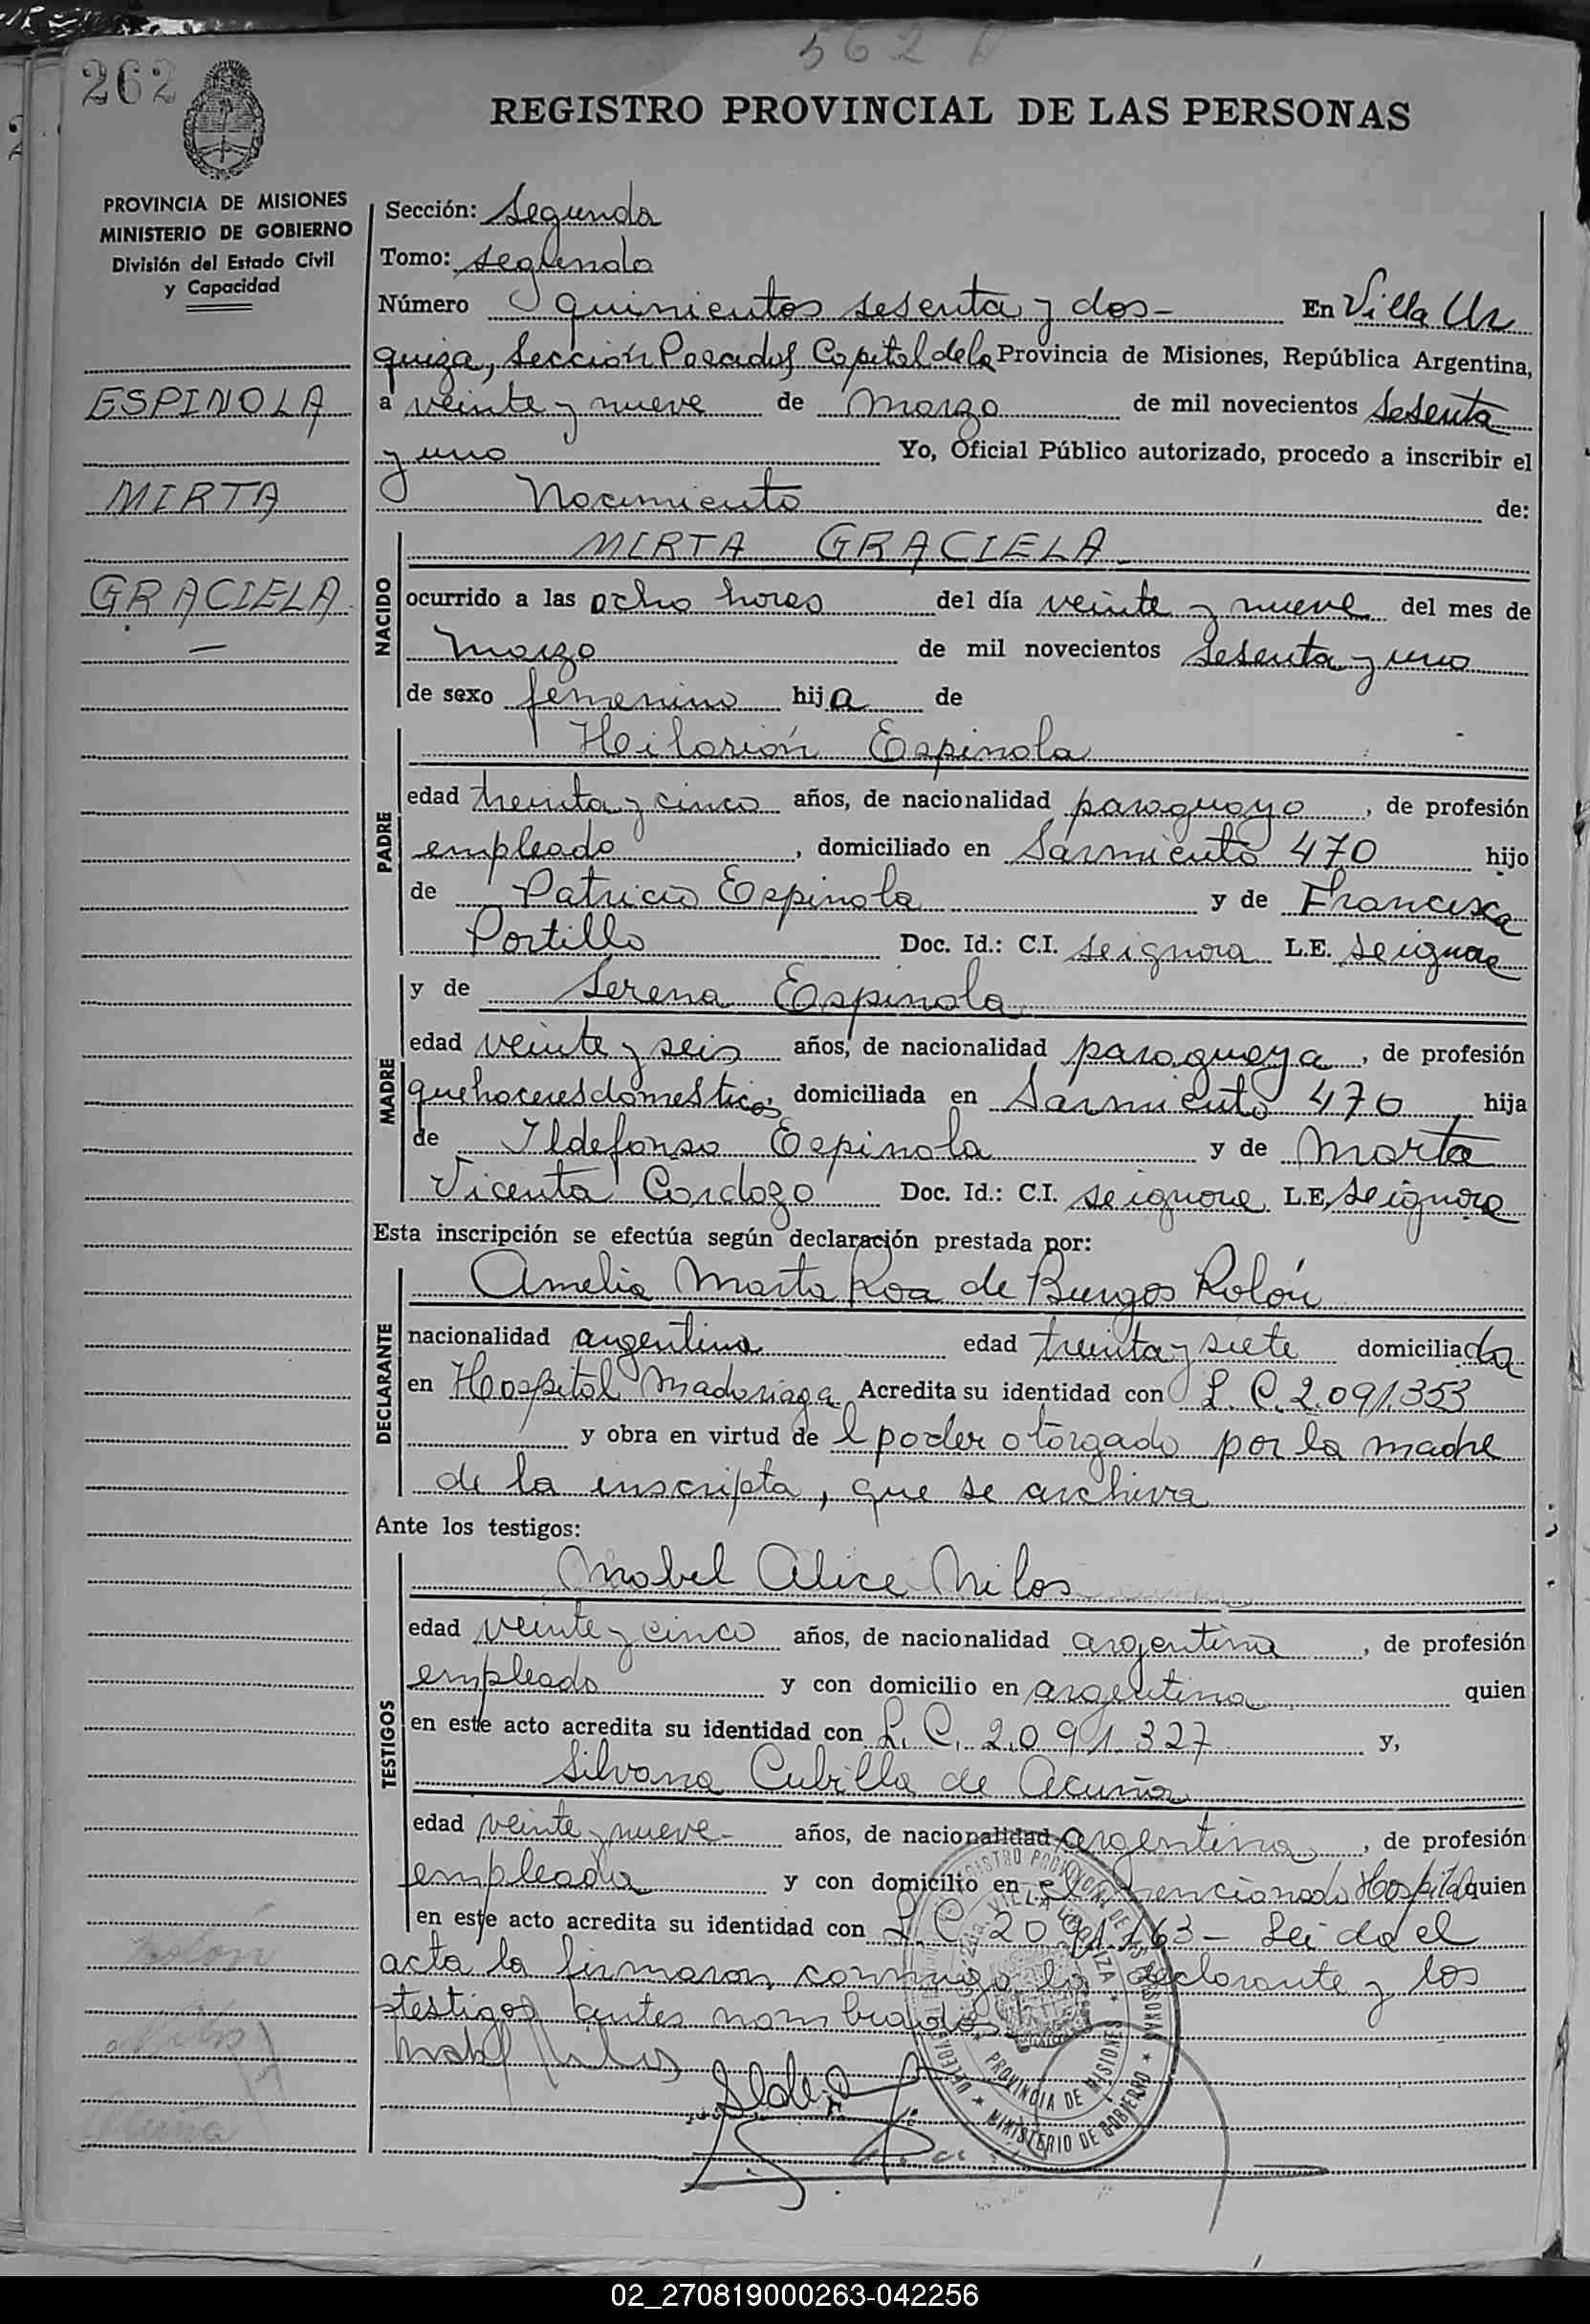 562
262
REGISTRO PROVINCIAL DE LAS PERSONAS
PROVINCIA DE MISIONES
MINISTERIO DE GOBIERNO
División del Estado Civil
y Capacidad
ESPINOLA
MIRTA
GRACIELA
Sección: Segunda
Tomo: segundo
Número quinientos sesenta y dos- En Villa Ur
quiza, Sección Posadas Capital dela Provincia de Misiones, República Argentina,
a veinte y nueve de Marzo de mil novecientos sesenta
y uno Yo, Oficial Público autorizado, procedo a inscribir el
Nacimiento de:
NACIDO
MIRTA GRACIELA
ocurrido a las ocho horas del día veinte y nueve del mes de
Marzo de mil novecientos sesenta y uno
de sexo femenino hija de
PADRE
Heilarión Espinola
edad treinta y cinco años, de nacionalidad paraguayo, de profesión
empleado, domiciliado en Sarmiento 470 hijo
de Patricio Espinola y de Francisca
Portillo Doc. Id.: C.I. se ignora L.E. se ignora
MADRE
y de Serena Espinola
edad veinte y seis años, de nacionalidad paraguaya, de profesión
quehaceres domesticos, domiciliada en Sarmiento 470, hija
de Ildefonso Espinola y de Marta
Vicenta Cardozo Doc. Id.: C.I. se ignora L.E. se ignora
Esta inscripción se efectúa según declaración prestada por:
DECLARANTE
Amelia Marta Roa de Burgos Rolón
nacionalidad argentina edad treinta y siete domiciliada
en Hospital Madariaga Acredita su identidad con L. C. 2.091.353
y obra en virtud de l poder otorgado por la madre
de la inscripta, que se archiva
Ante los testigos:
TESTIGOS
Mabel Alice Milos
edad veinte y cinco años, de nacionalidad argentina, de profesión
empleado y con domicilio en argentina quien
en este acto acredita su identidad con L. C. 2.091.327 y,
Silvana Cubilla de Acuña
edad veinte y nueve- años, de nacionalidad argentina, de profesión
empleada y con domicilio en el mencionado Hospital quien
en este acto acredita su identidad con L. C. 2091.163 - Leida el
acta la firmaron conmigo la declarante y los
testigos antes nombrados
Mabel Milos
REGISTRO PROVINCIAL DE LAS PERSONAS
VILLA URQUIZA
PROVINCIA DE MISIONES
MINISTERIO DE GOBIERNO
Rolón
Milos
Acuña
02_270819000263-042256